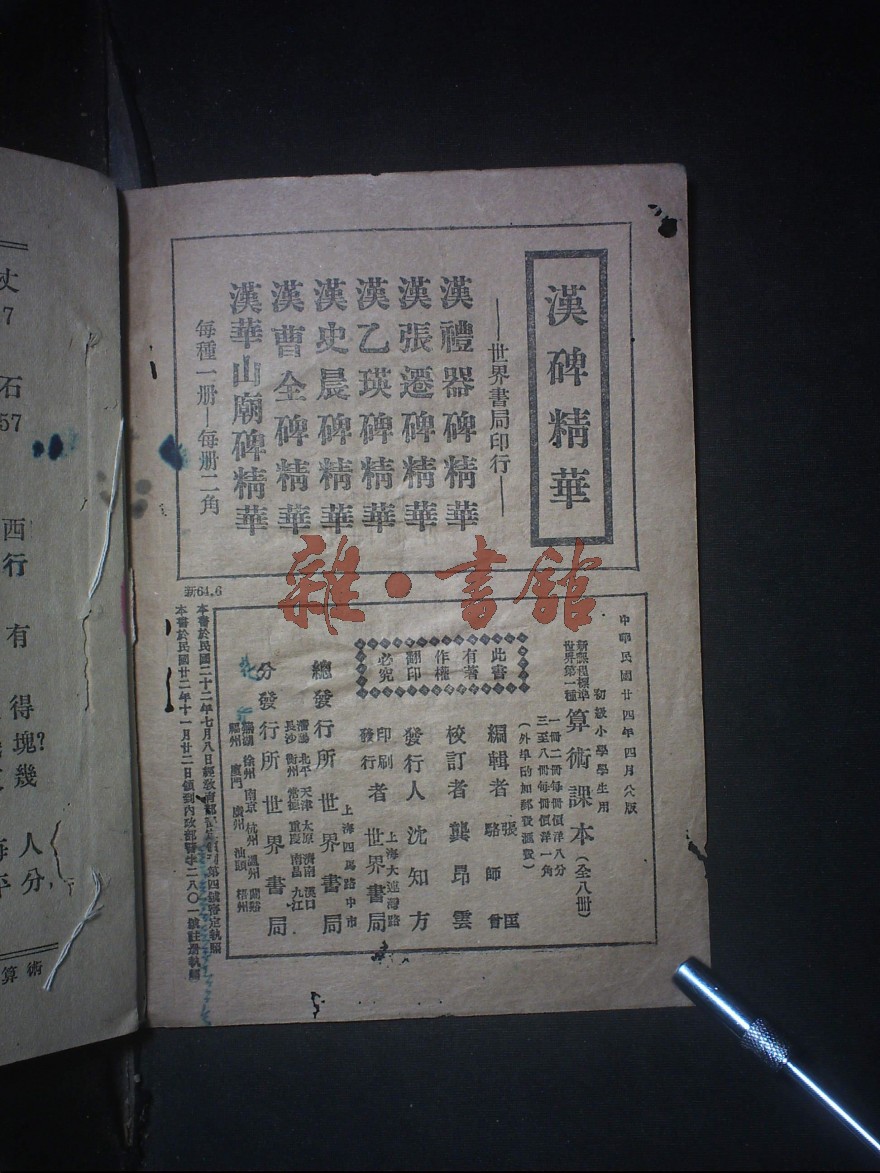 漢碑精華
世界書局印行
漢禮器碑精華
漢張遷碑精華
漢乙瑛碑精華
漢史晨碑精華
漢曹全碑精華
漢華山廟碑精華
每種一册—每册二角
雜·書館
新64.6
中華民國廿四年四月公版
初級小學學生用
新課程標準
世界第一種
算術課本(全八冊)
一冊二冊每冊價洋八分
三至八冊每冊價洋一角
(外埠酌加郵費滙費)
此書
有著
作權
翻印
必究
編輯者 張匡 駱師曾
校訂者 龔昂雲
發行人 沈知方
上海大連灣路
印刷
發行
者 世界書局
上海四馬路中市
總發行所 世界書局
瀋陽 北平 天津 太原 濟南 漢口
長沙 衡州 常德 重慶 南昌 九江
分發行所 世界書局
蕪湖 徐州 南京 杭州 溫州 蘭谿
福州 廈門 廣州 汕頭 梧州
本書於民國二十二年七月八日經教育部
第四號審定執照
本書於民國廿二年十一月廿二日領到內政部警字二八〇一號註册執照
丈
7
石
57
西
行
有
得
塊?
幾
人
分,
算術